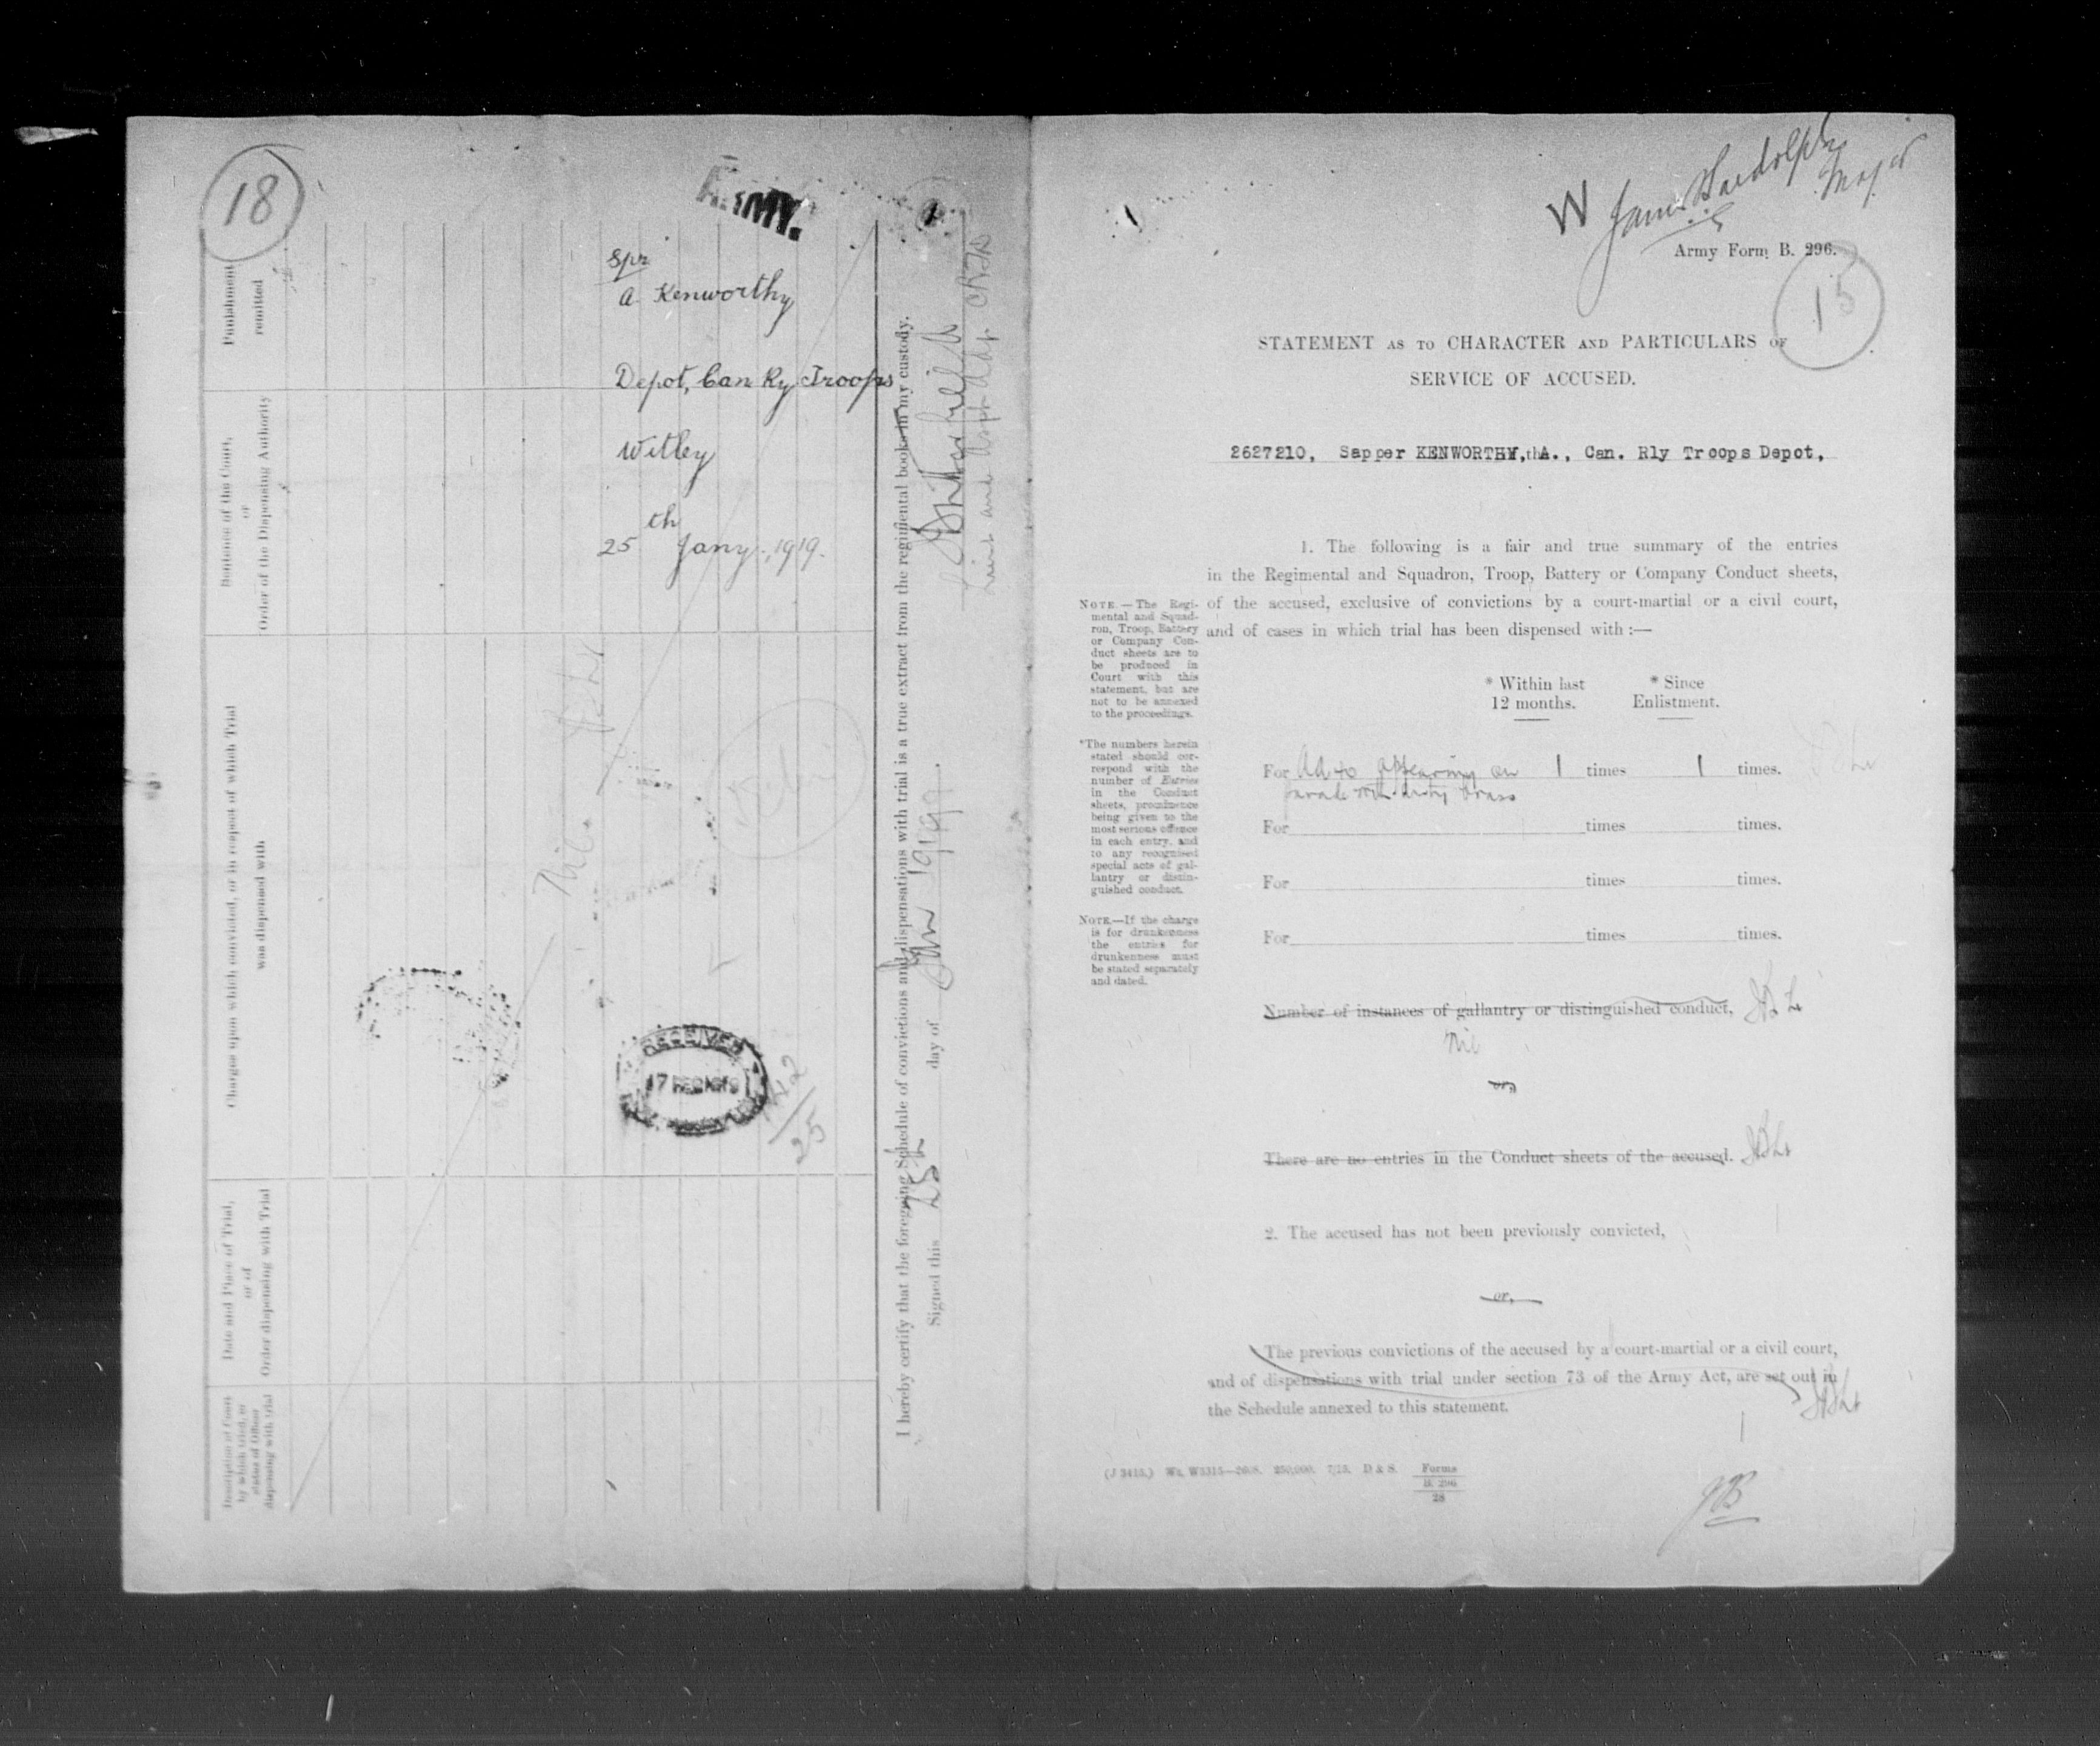 18
ARMY.
Spr
A. Kenworthy
Depot, Can Ry Troops
Witley
25th Jany., 1919.
Punishment
remitted
Sentence of the Court,
or
Order of the Dispensing Authority
Charge upon which convicted, or in respect of which Trial
was dispensed with
Nil.
Date and Place of Trial,
or of
Order dispensing with Trial
Description of Court
by which tried, or
status of Officer
dispensing with trial
RECEIVED
17 FEB 1919
I hereby certify that the foregoing Schedule of convictions and dispensations with trial is a true extract from the regimental books in my custody.
Signed this 25th day of Jan 1919.
W
Major
Army Form B. 296.
15
STATEMENT AS TO CHARACTER AND PARTICULARS OF
SERVICE OF ACCUSED.
2627210, Sapper KENWORTHY, A., Can. Rly Troops Depot,
1. The following is a fair and true summary of the entries
in the Regimental and Squadron, Troop, Battery or Company Conduct sheets,
of the accused, exclusive of convictions by a court-martial or a civil court,
and of cases in which trial has been dispensed with :—
NOTE.—The Regi-
mental and Squad-
ron, Troop, Battery
or Company Con-
duct sheets are to
be produced in
Court with this
statement, but are
not to be annexed
to the proceedings.
*The numbers herein
stated should cor-
respond with the
number of Entries
in the Conduct
sheets, prominence
being given to the
most serious offence
in each entry, and
to any recognised
special acts of gal-
lantry or distin-
guished conduct.
NOTE.—If the charge
is for drunkenness
the entries for
drunkenness must
be stated separately
and dated.
* Within last
12 months.
* Since
Enlistment.
For appearing on 1 times 1 times.
parade with dirty brass
For times times.
For times times.
For times times.
Number of instances of gallantry or distinguished conduct,
Nil
or,
There are no entries in the Conduct sheets of the accused.
2. The accused has not been previously convicted,
or,
The previous convictions of the accused by a court-martial or a civil court,
and of dispensations with trial under section 73 of the Army Act, are set out in
the Schedule annexed to this statement.
Forms
B. 296
28